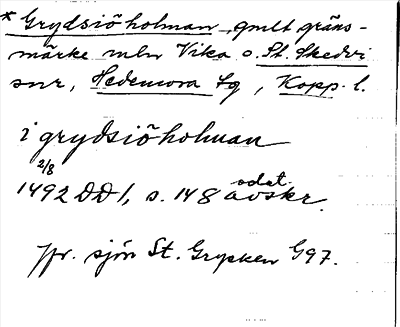 * Grydsiöholman, gmlt gräns-
märke mln Vika o. St. Skedvi
snr, Hedemora tg, Kopp. l.
i grydsiöholman
2/8
1492 DD 1, s. 148 odat. avskr.
Jfr. sjön St. Grycken G97.